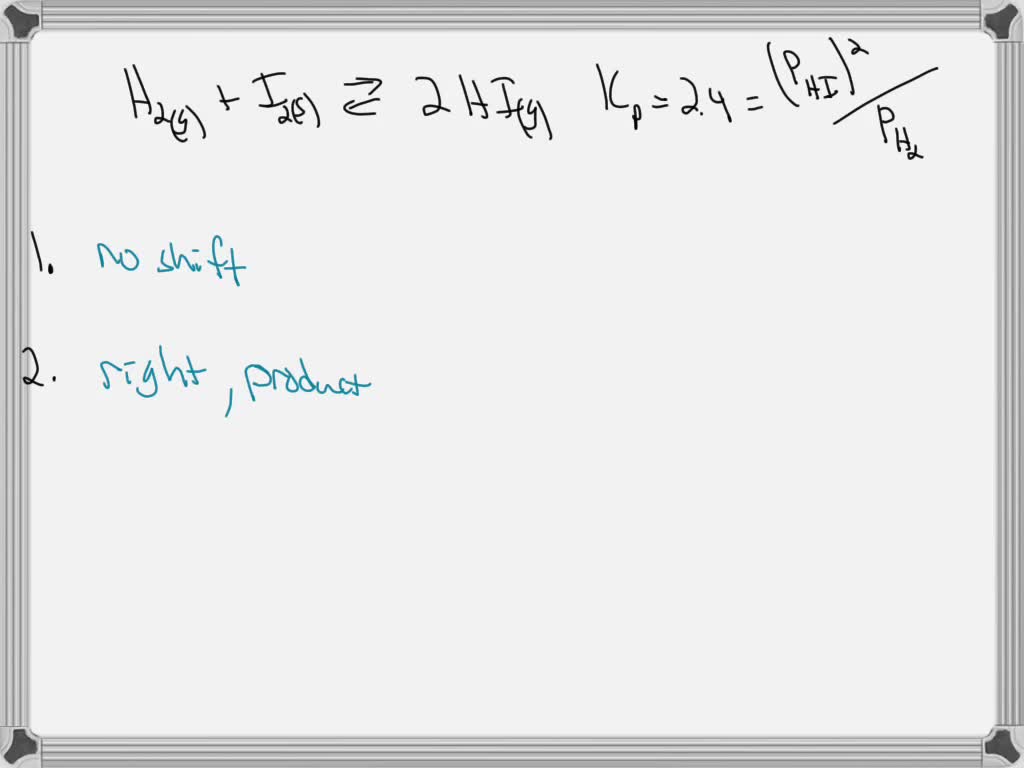 H₂(g) + I₂(s) ⇄ 2 HI(g) Kₚ = 2.4 = (P_HI)² / P_H₂
1. no shift
2. right, product